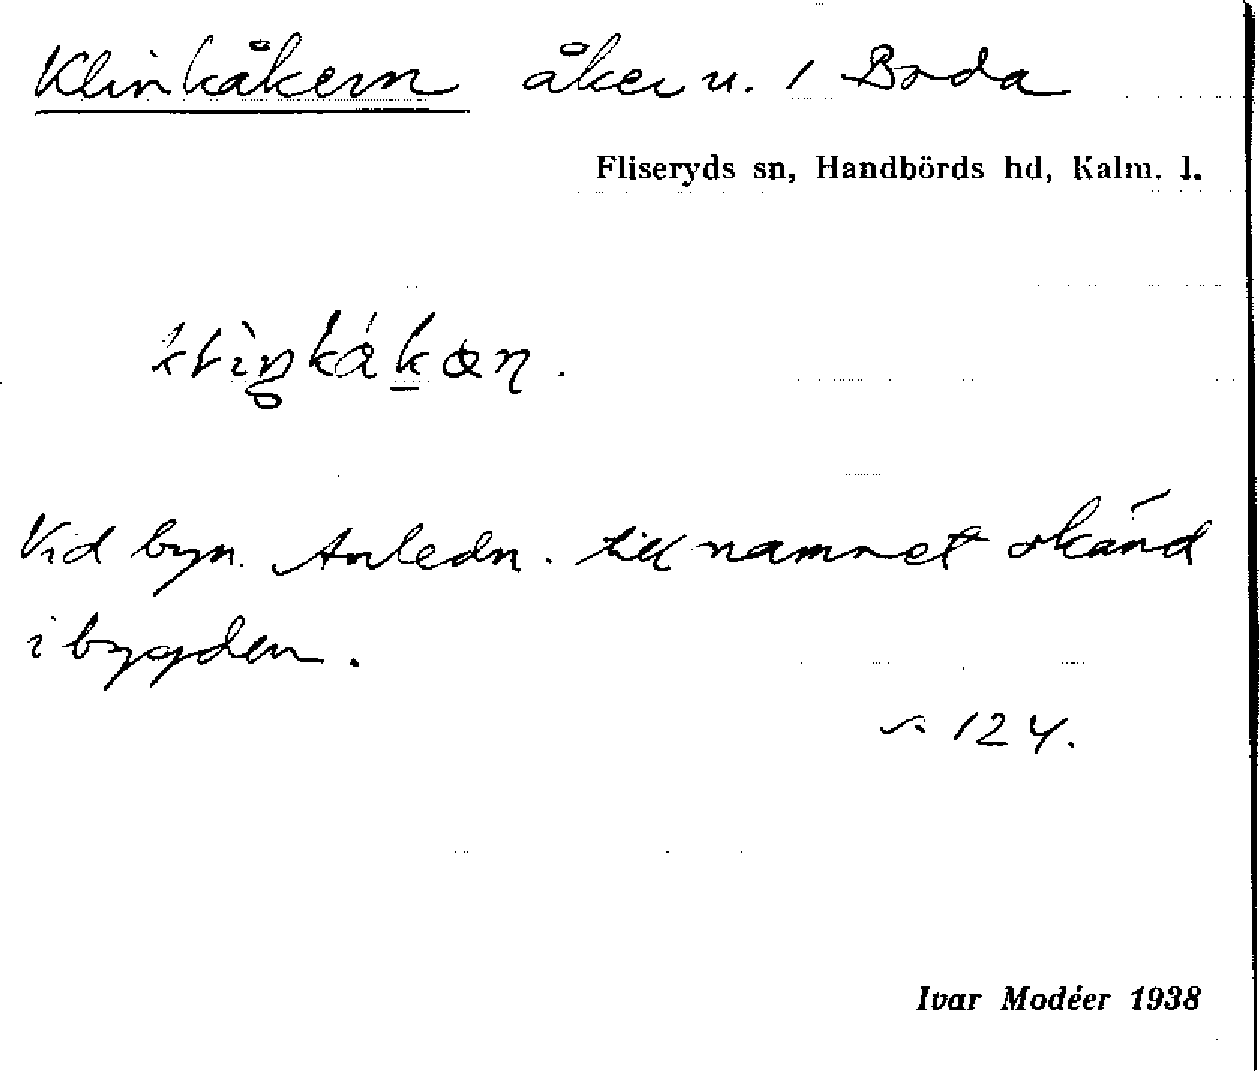 Klinkåkern åker u. 1 Boda
Fliseryds sn, Handbörds hd, Kalm. l.
Vid byn. Anledn. till namnet okänd
i bygden.
s. 124.
Ivar Modéer 1938